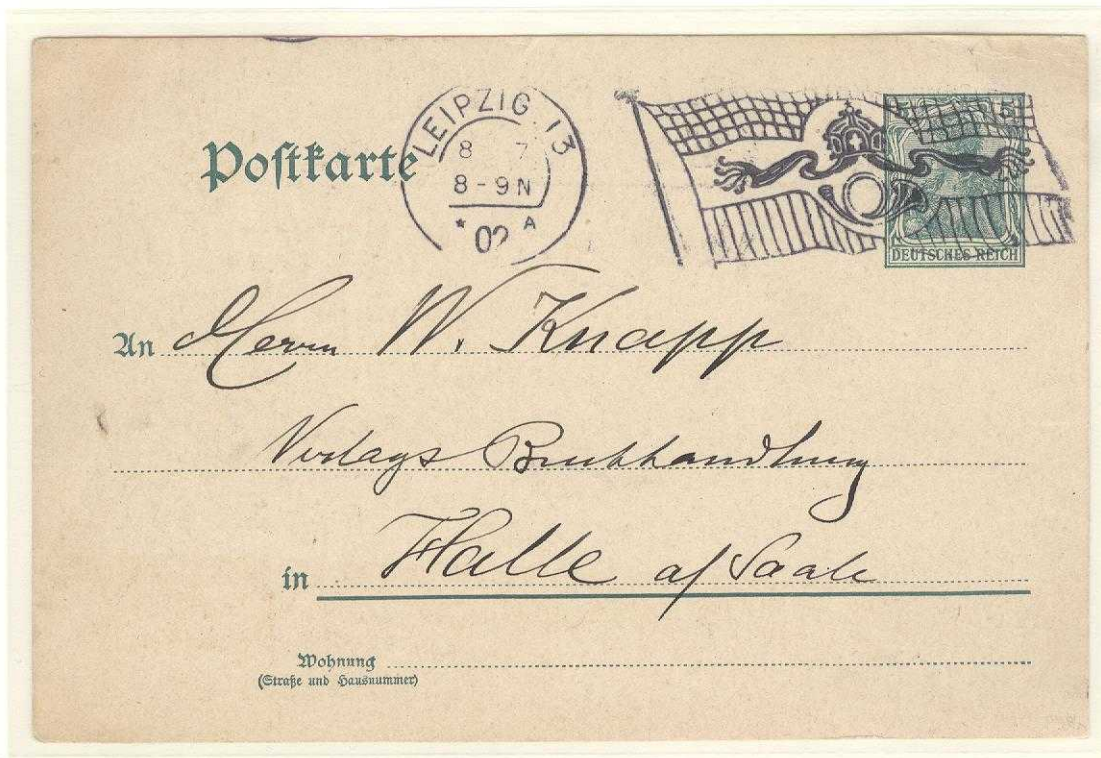 LEIPZIG 13
8 7
8-9N
* 02 A
Postkarte
5
DEUTSCHES REICH
An Herrn W. Knapp
Verlags Buchhandlung
in Halle a/Saale
Wohnung
(Straße und Hausnummer)